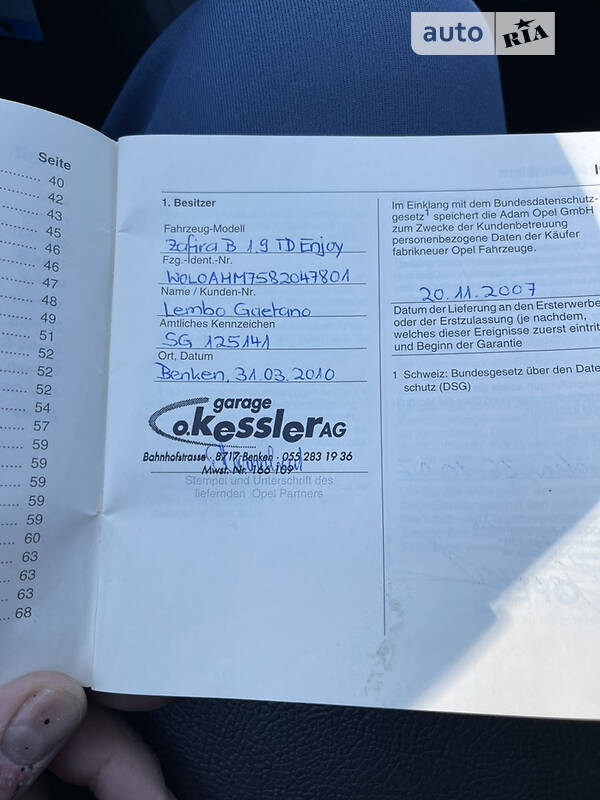 auto RIA
Seite
40
42
43
45
46
46
47
48
49
51
52
52
52
54
57
59
59
59
59
59
60
63
63
63
68
1. Besitzer
Fahrzeug-Modell
Zafira B 1.9 TD Enjoy
Fzg.-Ident.-Nr.
W0L0AHM7582047801
Name / Kunden-Nr.
Lembo Gaetano
Amtliches Kennzeichen
SG 125141
Ort, Datum
Benken, 31.03.2010
garage
o.kessler AG
Bahnhofstrasse · 8717 Benken · 055 283 19 36
Mwst. Nr. 166 109
Stempel und Unterschrift des
liefernden Opel Partners
Im Einklang mit dem Bundesdatenschutz-
gesetz1 speichert die Adam Opel GmbH
zum Zwecke der Kundenbetreuung
personenbezogene Daten der Käufer
fabrikneuer Opel Fahrzeuge.
20.11.2007
Datum der Lieferung an den Ersterwerbe
oder der Erstzulassung (je nachdem,
welches dieser Ereignisse zuerst eintrit
und Beginn der Garantie
1 Schweiz: Bundesgesetz über den Date
schutz (DSG)